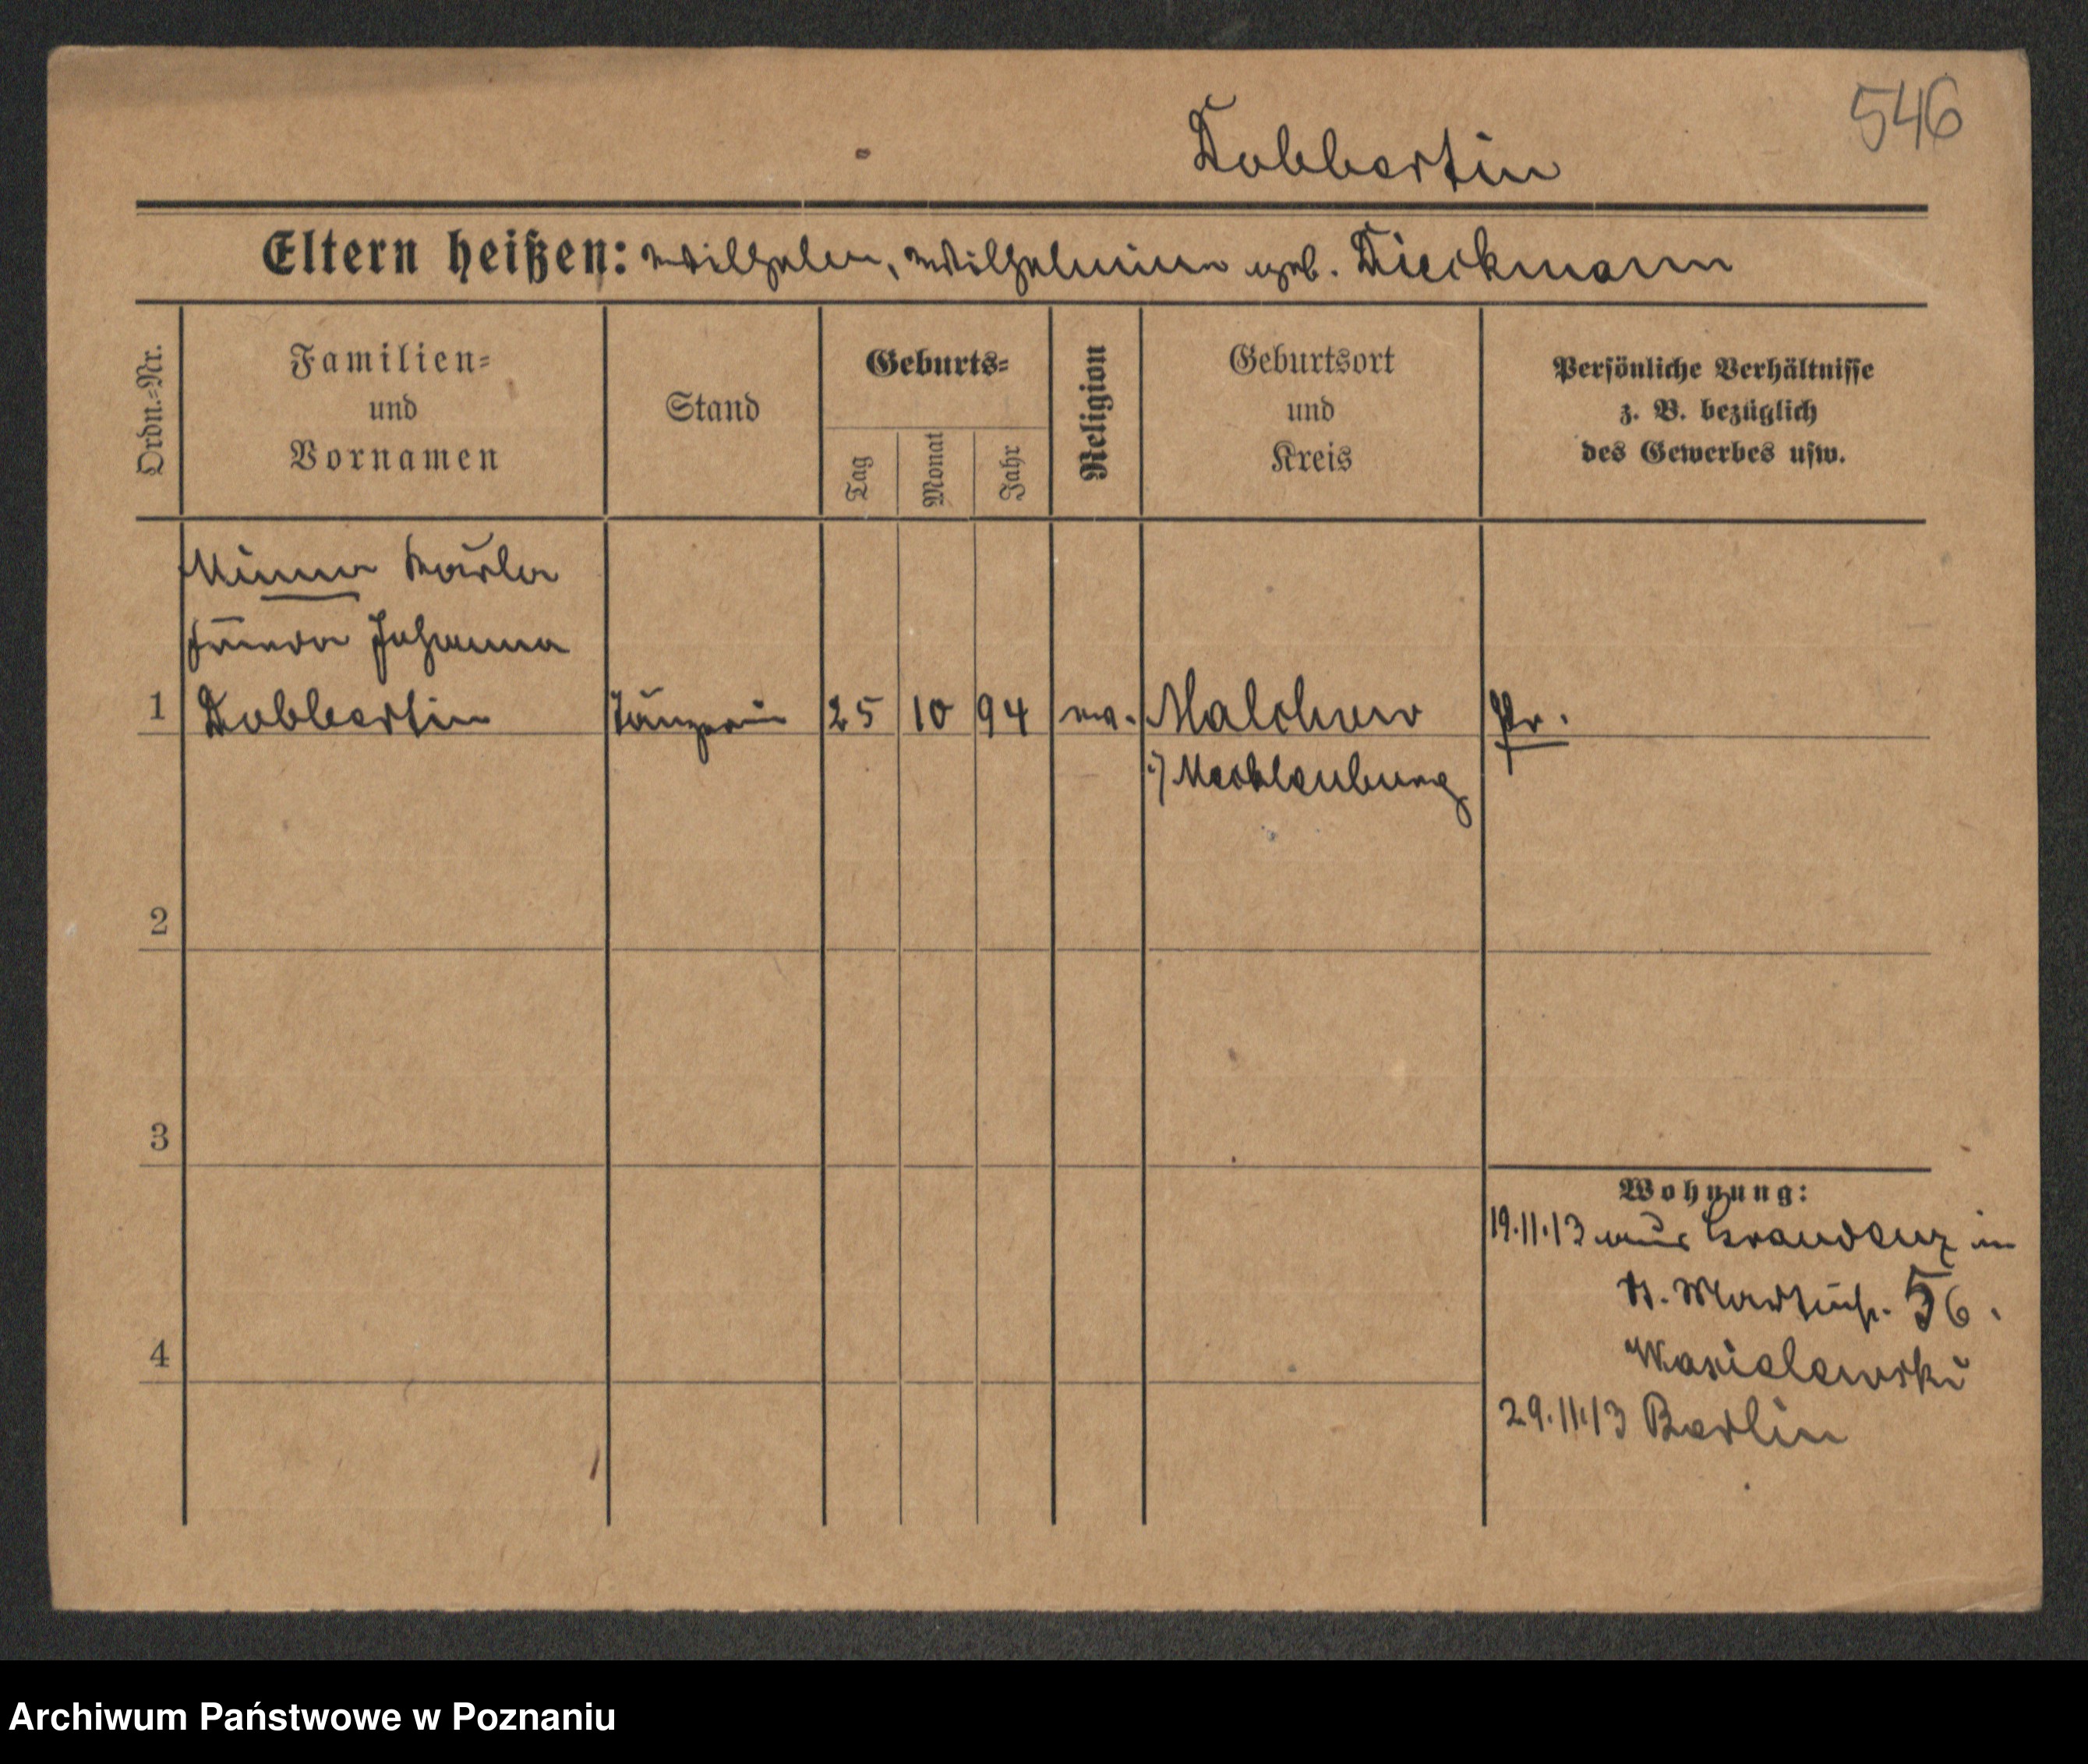 546
Dobbertin
Eltern heißen: Wilhelm, Wilhelmine geb. Dieckmann
Ordn.-Nr.
Familien-
und
Vornamen
Stand
Geburts-
Tag
Monat
Jahr
Religion
Geburtsort
und
Kreis
Persönliche Verhältnisse
z. B. bezüglich
des Gewerbes usw.
Minna
Johanna
1 Dobbertin Tänzerin 25 10 94 ev. Malchow Pr.
i/ Mecklenburg
2
3
4
Wohnung:
19.11.13 aus Graudenz in
St. Martinstr. 56.
Wasielewski
29.11.13 Berlin
Archiwum Państwowe w Poznaniu